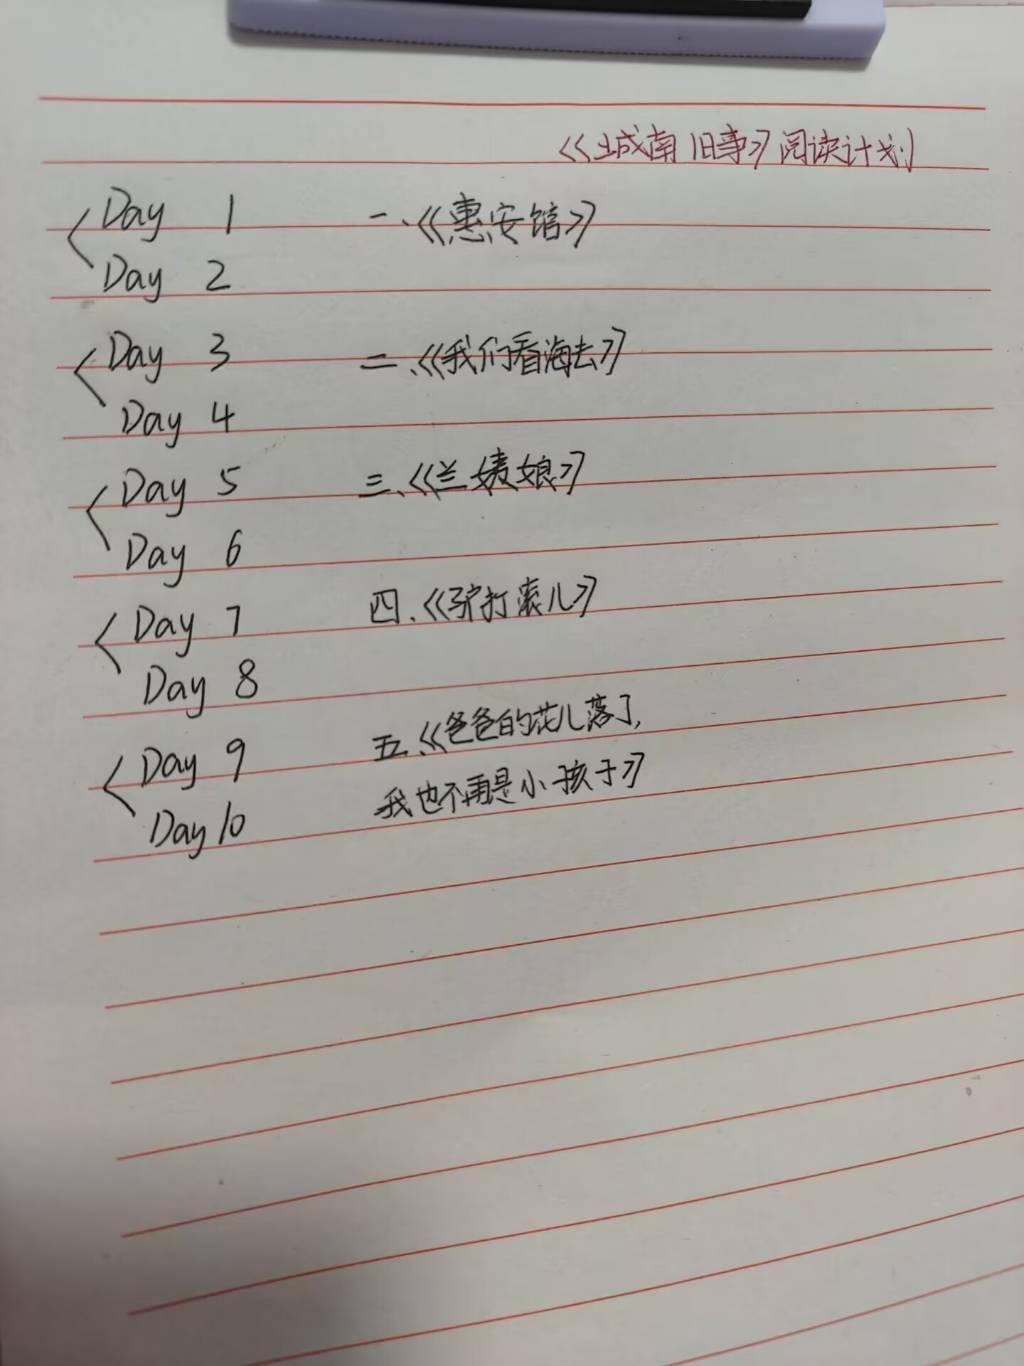 《城南旧事》阅读计划
Day 1 一、《惠安馆》
Day 2
Day 3 二、《我们看海去》
Day 4
Day 5 三、《兰姨娘》
Day 6
Day 7 四、《驴打滚儿》
Day 8
Day 9 五、《爸爸的花儿落了,
Day 10 我也不再是小孩子》